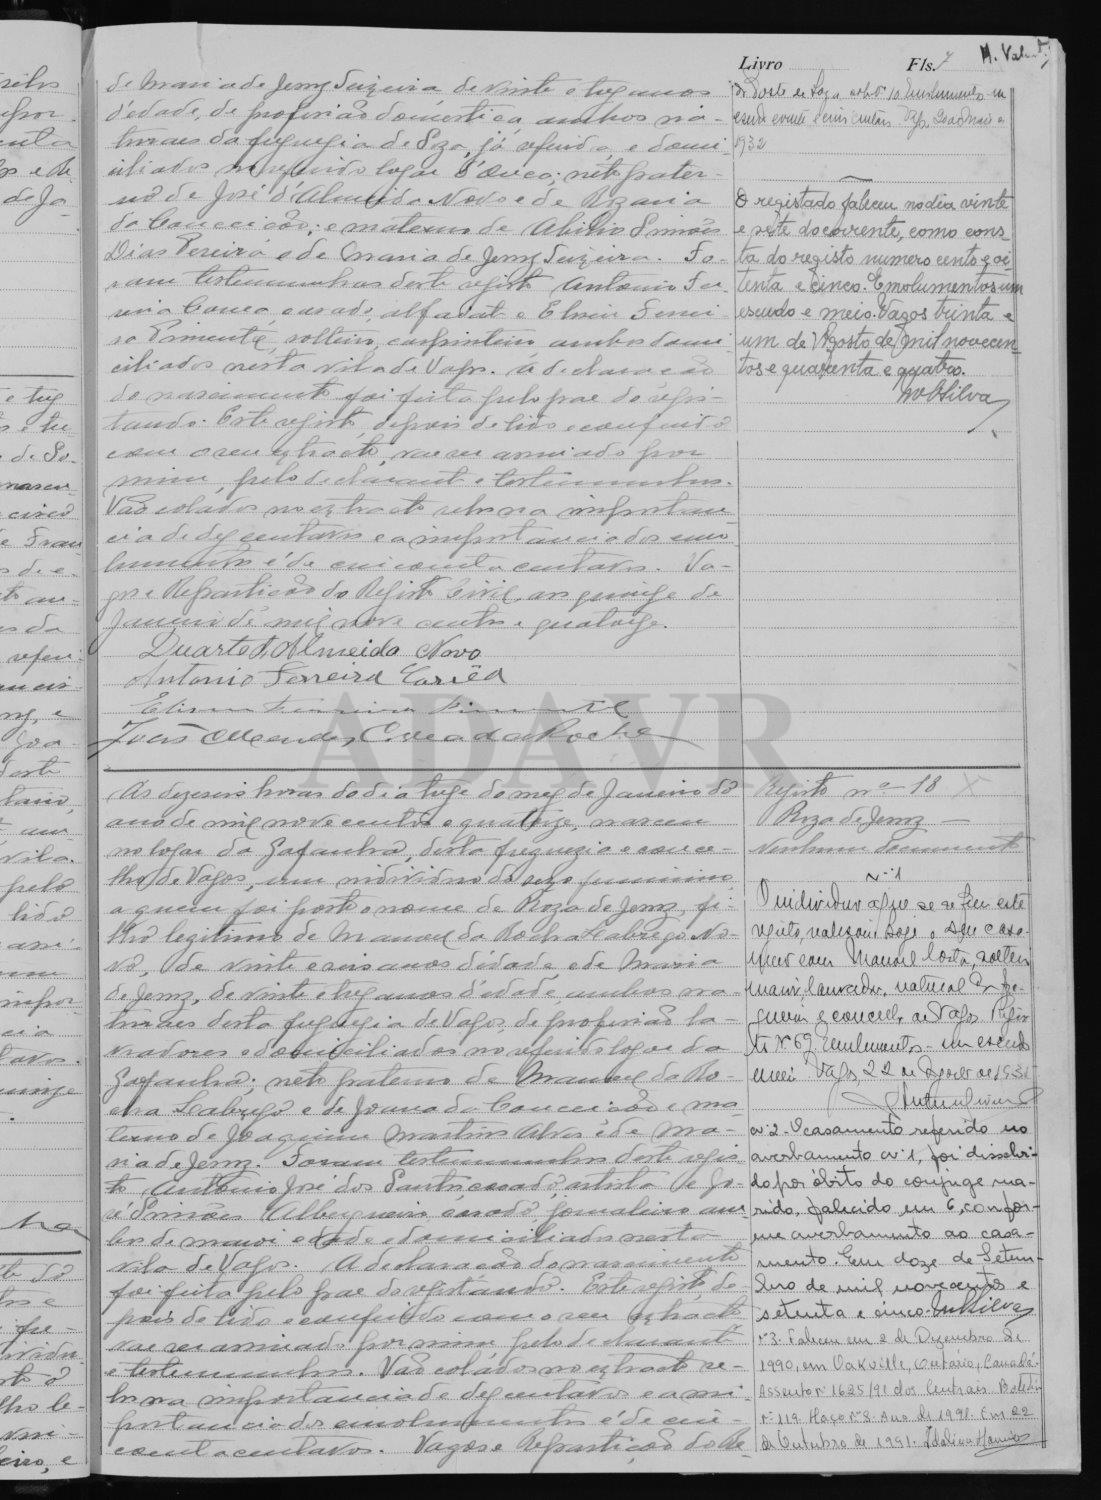 Livro Fls. 7
de Maria de Jesus Teixeira de vinte e tres annos
d'edade, de profissão domestica, ambos na-
turaes da freguezia de Soza, já referida, e domi-
ciliados no referido logar d'Ouca; neto pater-
no de José d'Almeida Novo e de Rozaria
da Conceição; e materno de Abilio Simões
Dias Pereira e de Maria de Jesus Teixeira. Fo-
ram testemunhas deste registo Antonio Fer-
reira casado, alfaiate e Ferrei-
ra Pimentel, solteiro, carpinteiro ambos domi-
ciliados nesta vila de Vagos. A declaração
do nascimento foi feita pelo pae do regis-
tando. Este registo, depois de lido e conferido
com o seu extracto, vae ser assinado por
mim, pelo declarante e testemunhas.
Vão colados no extracto selos na importan-
cia de dez centavos e a importancia dos emo-
lumentos é de cincoenta centavos. Va-
gos e Repartição do Registo Civil, aos quinze de
Janeiro de mil nove centos e quatorze.
Duarte d'Almeida Novo
Antonio Ferreira
Ferreira Pimentel
Mendes Correa da Rocha
O registado faleceu no dia vinte
e sete do corrente, como cons-
ta do registo numero cento e oi-
tenta e cinco. Emolumentos um
escudo e meio. Vagos trinta e
um de Agosto de mil novecen-
tos e quarenta e quatro.
Silva
As dezeseis horas do dia treze do mez de Janeiro do
ano de mil nove centos e quatorze, nasceu
no logar da Gafanha, desta freguezia e conce-
lho de Vagos, um individuo do sexo feminino
a quem foi posto o nome de Roza de Jesus, fi-
lho legitimo de Manoel da Rocha Labrego No-
vo, de vinte e seis anos d'edade, e de Maria
de Jesus, de vinte e tres anos d'edade, ambos na-
turaes desta freguezia de Vagos, de profissão la-
vradores e domiciliados no referido logar da
Gafanha; neto paterno de Manoel da Ro-
cha Labrego e de Joana da Conceição e ma-
terno de Joaquim Martins Alves e de Ma-
ria de Jesus. Foram testemunhas deste regis-
to, Antonio José dos Santos casado, artista e Jo-
sé Simões casado, jornaleiro am-
bos de maior edade e domiciliados nesta
vila de Vagos. A declaração do nascimento
foi feita pelo pae do registando. Este registo, de-
pois de lido e conferido com o seu extracto
vae ser assinado por mim, pelo declarante
e testemunhas. Vão colados no extracto se-
los na importancia de dez centavos e a im-
portancia dos emolumentos é de cin-
coenta centavos. Vagos e Repartição do Re
Registo nº 18
Roza de Jesus
Nenhum documento
Nº 1
O individuo a que se refere este
registo, realizou hoje o seu casa-
mento com Manoel Costa, solteiro
maior, lavrador, natural da fre-
guezia e concelho de Vagos. Regis-
to Nº 69. Emolumentos um escudo
e meio. Vagos, 22 de
nº 2 - O casamento referido no
averbamento nº 1, foi dissolvi-
do por óbito do cônjuge ma-
rido, falecido em 6, confor-
me averbamento ao casa-
mento. Em doze de Setem-
bro de mil novecentos e
setenta e cinco. Silva
nº 3. Faleceu em 2 de Dezembro de
1990, em Oakville, Ontário, Canadá.
Assento nº 1625/91 dos Centrais. Boletim
nº 119. Maço nº 8. Ano de 1991. Em 22
de Outubro de 1991.
ADAVR